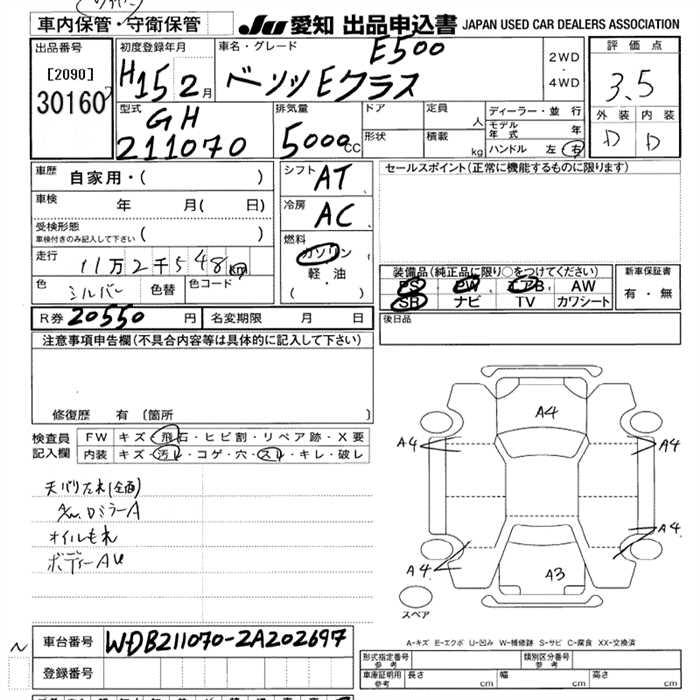 車内保管・守衛保管
JU 愛知 出品申込書 JAPAN USED CAR DEALERS ASSOCIATION
出品番号
[2090]
30160
初度登録年月
H15 2月
車名・グレード
E500
ベンツEクラス
2WD
・
4WD
評価点
3.5
外装 内装
D D
型式
GH
211070
排気量
5000cc
ドア
定員 人
形状
積載 kg
ディーラー・並行
モデル年式 年
ハンドル 左 右
車歴 自家用・( )
車検 年 月( 日)
受検形態
車検付きのみ記入して下さい ( )
走行 11万2千548km
色 シルバー 色替 色コード
シフト AT
冷房 AC
燃料
ガソリン
軽・油
( ・ )
セールスポイント(正常に機能するものに限ります)
装備品(純正品に限り○をつけてください)
PS PW エアB AW
SR ナビ TV カワシート
新車保証書
有・無
R券 20550円 名変期限 月 日
後日品
注意事項申告欄(不具合内容等は具体的に記入して下さい)
修復歴 有 〔箇所 〕
検査員記入欄
FW キズ・飛石・ヒビ割・リペア跡・X要
内装 キズ・汚レ・コゲ・穴・スレ・キレ・破レ
ミラーA
オイルもれ
ボディーAU
A4
A4
A4
A4
A4
A3
スペア
A-キズ E-エクボ U-凹み W-補修跡 S-サビ C-腐食 XX-交換済
車台番号 WDB211070-2A202697
登録番号
型式指定番号
参考
類別区分番号
参考
車庫証明用
参考
長さ 幅 高さ